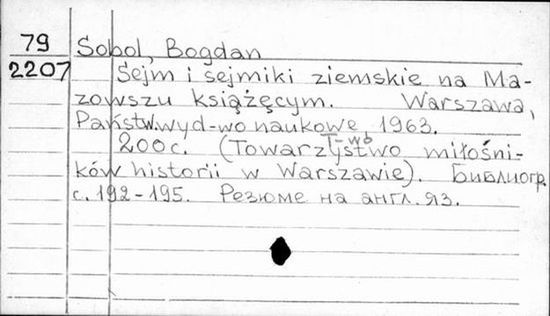 79 Sobol, Bogdan
2207 Sejm i sejmiki ziemskie na Ma-
zowszu książęcym. Warszawa,
Państw.wyd-wo naukowe, 1963.
T-wo
200 с. (Towarzystwo miłośni-
ków historii w Warszawie). Библиогр.
с. 192-195. Резюме на англ. яз.